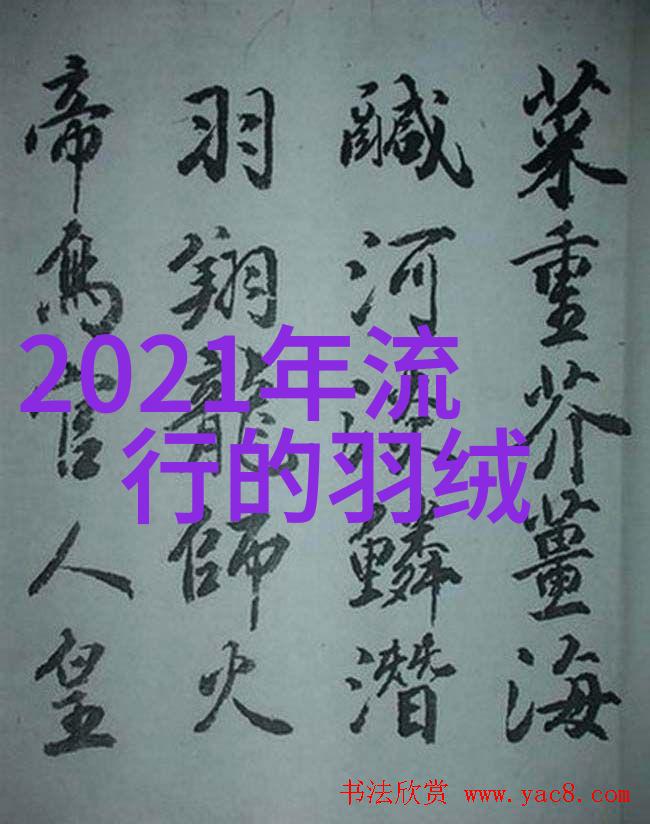 菜重芥薑海
鹹河淡鱗潛
羽翔龍師火
帝鳥官人皇
2021年流
行的羽绒
书法欣赏 www.yac8.com